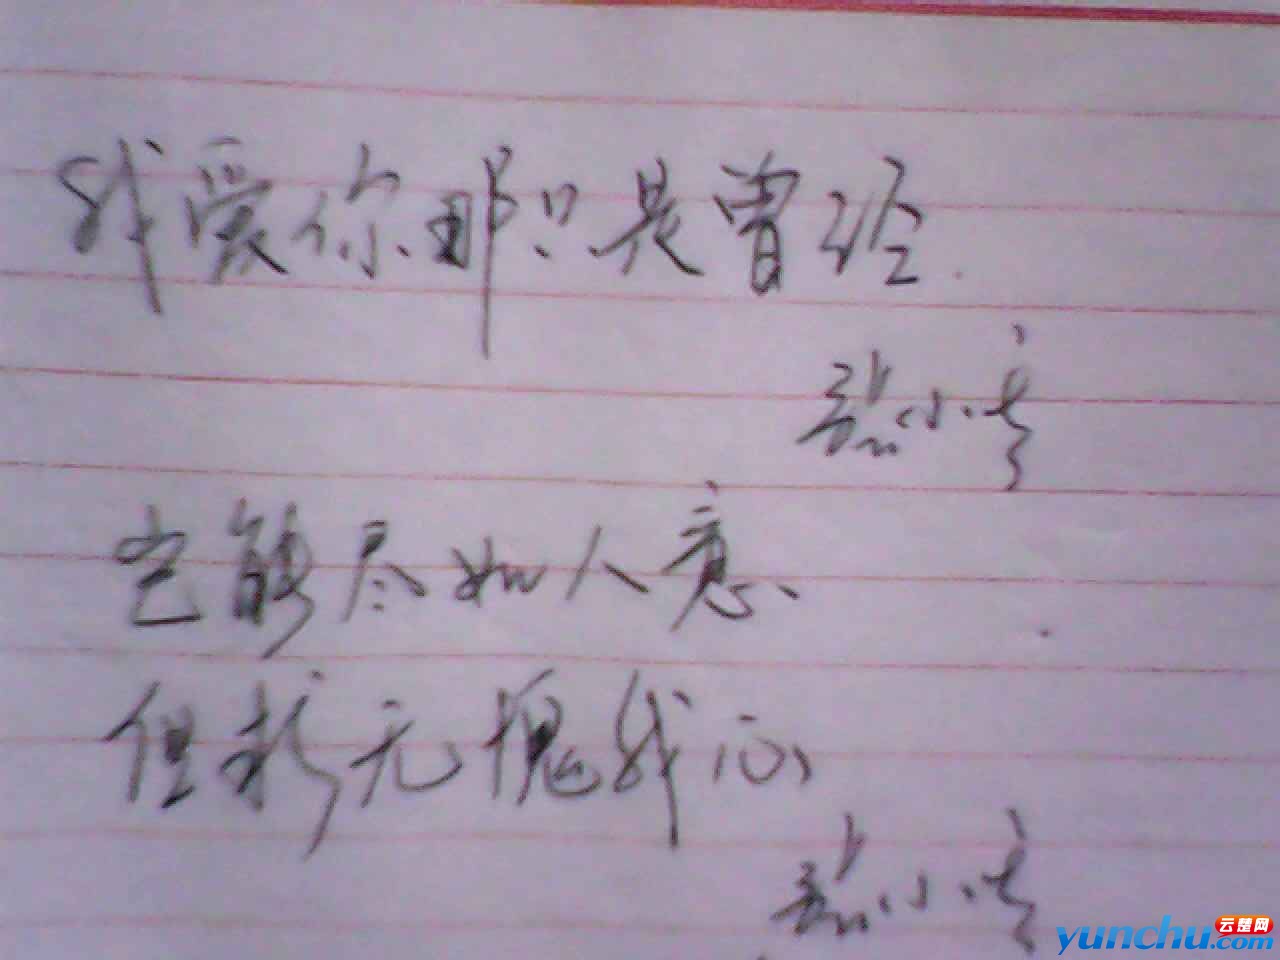 我爱你那只是曾经.
小
岂能尽如人意、
但求无愧我心
小
云楚网
yunchu.com